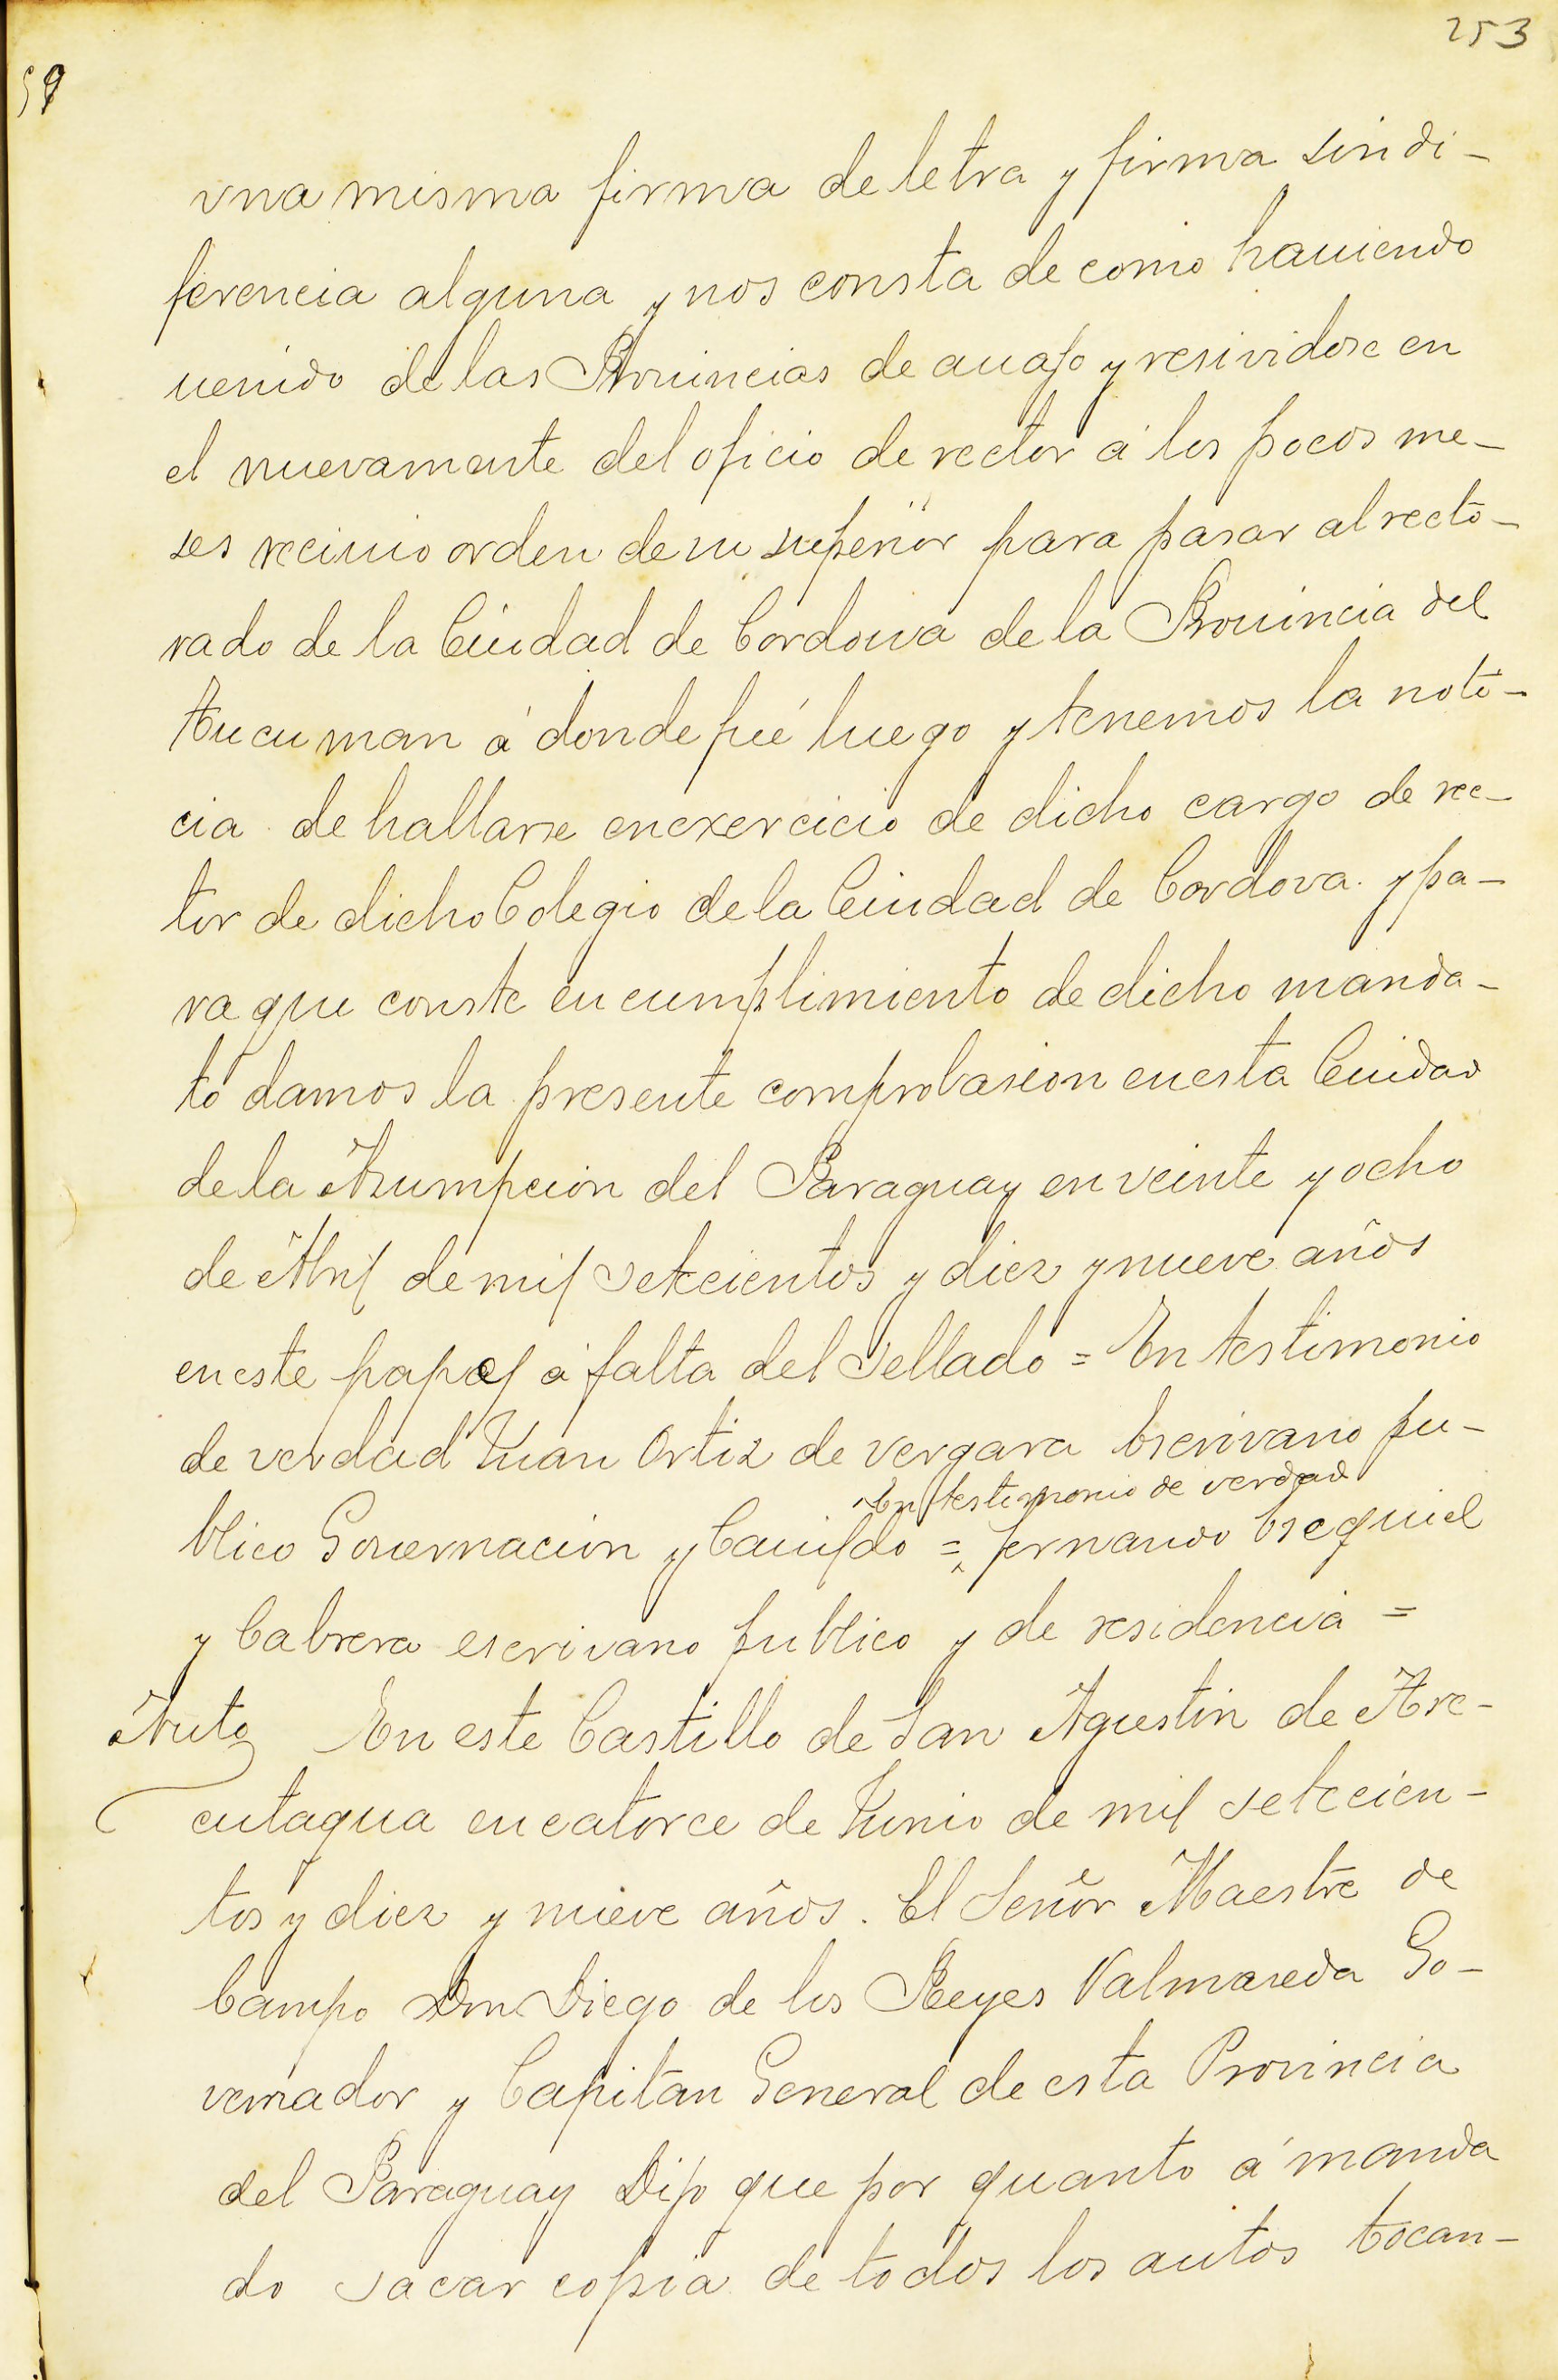 253
59
vna misma firma de letra y firma sin di-
ferencia alguna y nos consta de como hauiendo
uenido de las Prouincias de auajo y resividose en
el nuevamente del oficio de rector á los pocos me-
ses reciuio orden de su superior para pasar al recto-
rado de la Ciudad de Cordova de la Prouincia del
Tucuman á donde fué luego y tenemos la noti-
cia de hallarse en exercicio de dicho cargo de rec-
tor de dicho Colegio de la Ciudad de Cordova. y pa-
ra que conste en cumplimiento de dicho manda-
to damos la presente comprobasion en esta Ciudad
de la Asumpcion del Paraguay en veinte y ocho
de Abril de mil setecientos y diez y nueve años
en este papel á falta del sellado = En testimonio
de verdad Juan Ortiz de vergara Escrivano pu-
En testimonio de verdad
blico Governacion y Cauildo = fernando Esequiel
y Cabrera escrivano publico y de residencia =
Auto En este Castillo de San Agustin de Are-
cutagua en catorce de Junio de mil setecien-
tos y diez y nueve años. El Señor Maestre de
Campo Don Diego de los Reyes Valmaseda Go-
vernador y Capitan General de esta Provincia
del Paraguay Dijo que por quanto á manda
do sacar copia de todos los autos tocan-